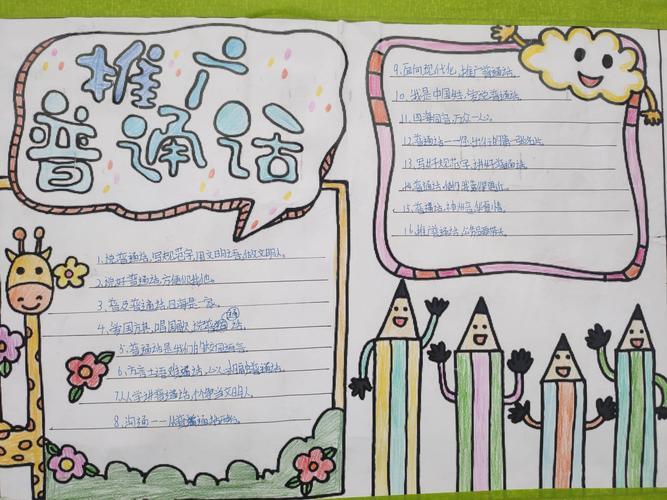 推广
普通话
1、说普通话,写规范字,用文明语,做文明人。
2、说好普通话,方便你我他。
3、普及普通话,四海是一家。
4、爱国旗,唱国歌,说普通话。
5、普通话是我们的校园语言。
6、方言土语难通话,心心相印普通话。
7、人人学讲普通话,个个争当文明人。
8、沟通——从普通话开始。
9、面向现代化,推广普通话。
10、我是中国娃,爱说普通话。
11、四海同音,万众一心。
12、普通话——你我的第一张名片。
13、写好规范字,讲好普通话。
14、普通话,
15、普通话,神州音,华夏情。
16、推广普通话,